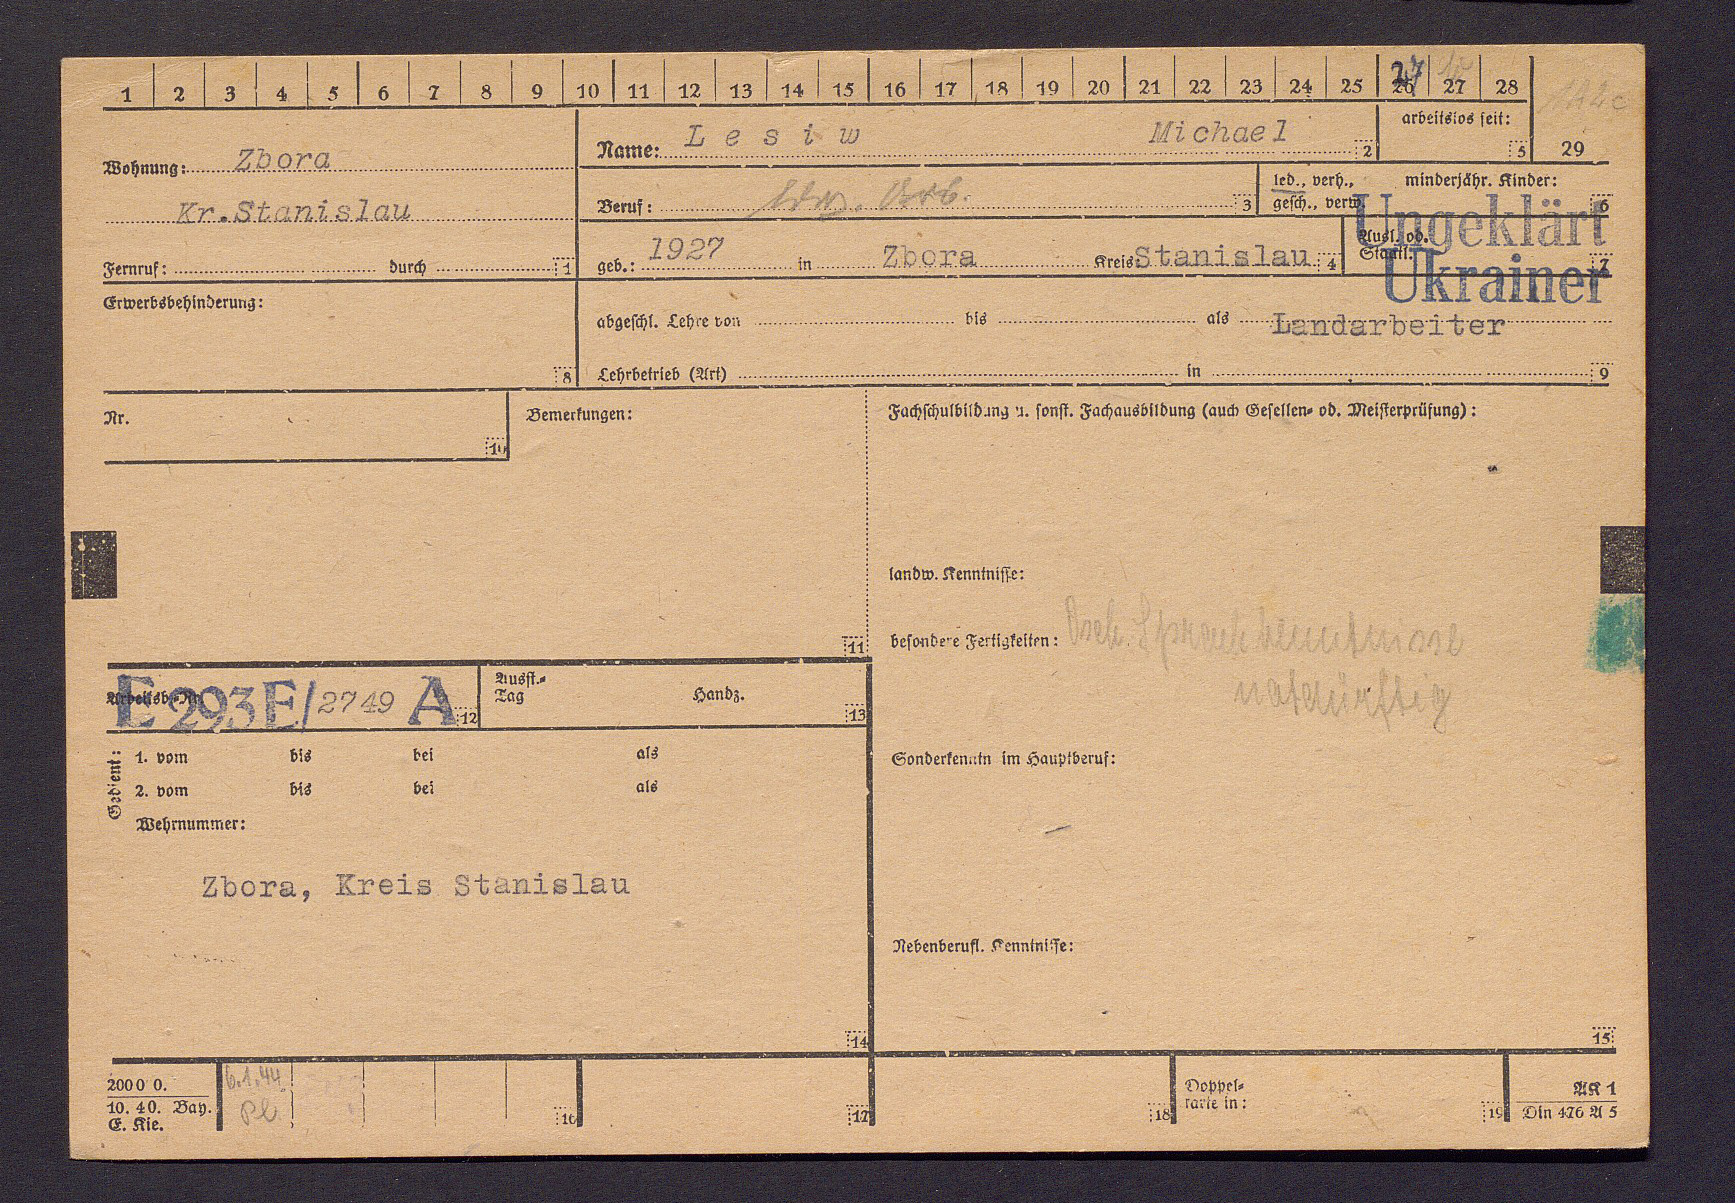 1 2 3 4 5 6 7 8 9 10 11 12 13 14 15 16 17 18 19 20 21 22 23 24 25 26 27 28
27
29
Wohnung: Zbora
Kr.Stanislau
Fernruf: durch 1
Name: Lesiw Michael 2
arbeitslos seit: 5
Beruf: ldw. Arb. 3
led., verh., gesch., verw.
minderjähr. Kinder: 6
geb.: 1927 in Zbora Kreis Stanislau 4
Ausl. od. Staatl.: 7
Ungeklärt
Ukrainer
Erwerbsbehinderung: 8
abgeschl. Lehre von bis als Landarbeiter
Lehrbetrieb (Art) in 9
Nr. 10
Bemerkungen: 11
Fachschulbildung u. sonst. Fachausbildung (auch Gesellen- od. Meisterprüfung):
landw. Kenntnisse:
besondere Fertigkeiten: Dsch. Sprachkenntnisse
notdürftig
Arbeitsb.-Nr. E 293E/2749 A 12
Ausst.-Tag Handz. 13
Gedient:
1. vom bis bei als
2. vom bis bei als
Wehrnummer:
Zbora, Kreis Stanislau
14
Sonderkenntn im Hauptberuf:
Nebenberufl. Kenntnisse:
15
2000 0.
10. 40. Bay.
E. Kie.
6.1.44
16
17
18
Doppel-
karte in: 19
AK 1
Din 476 A 5